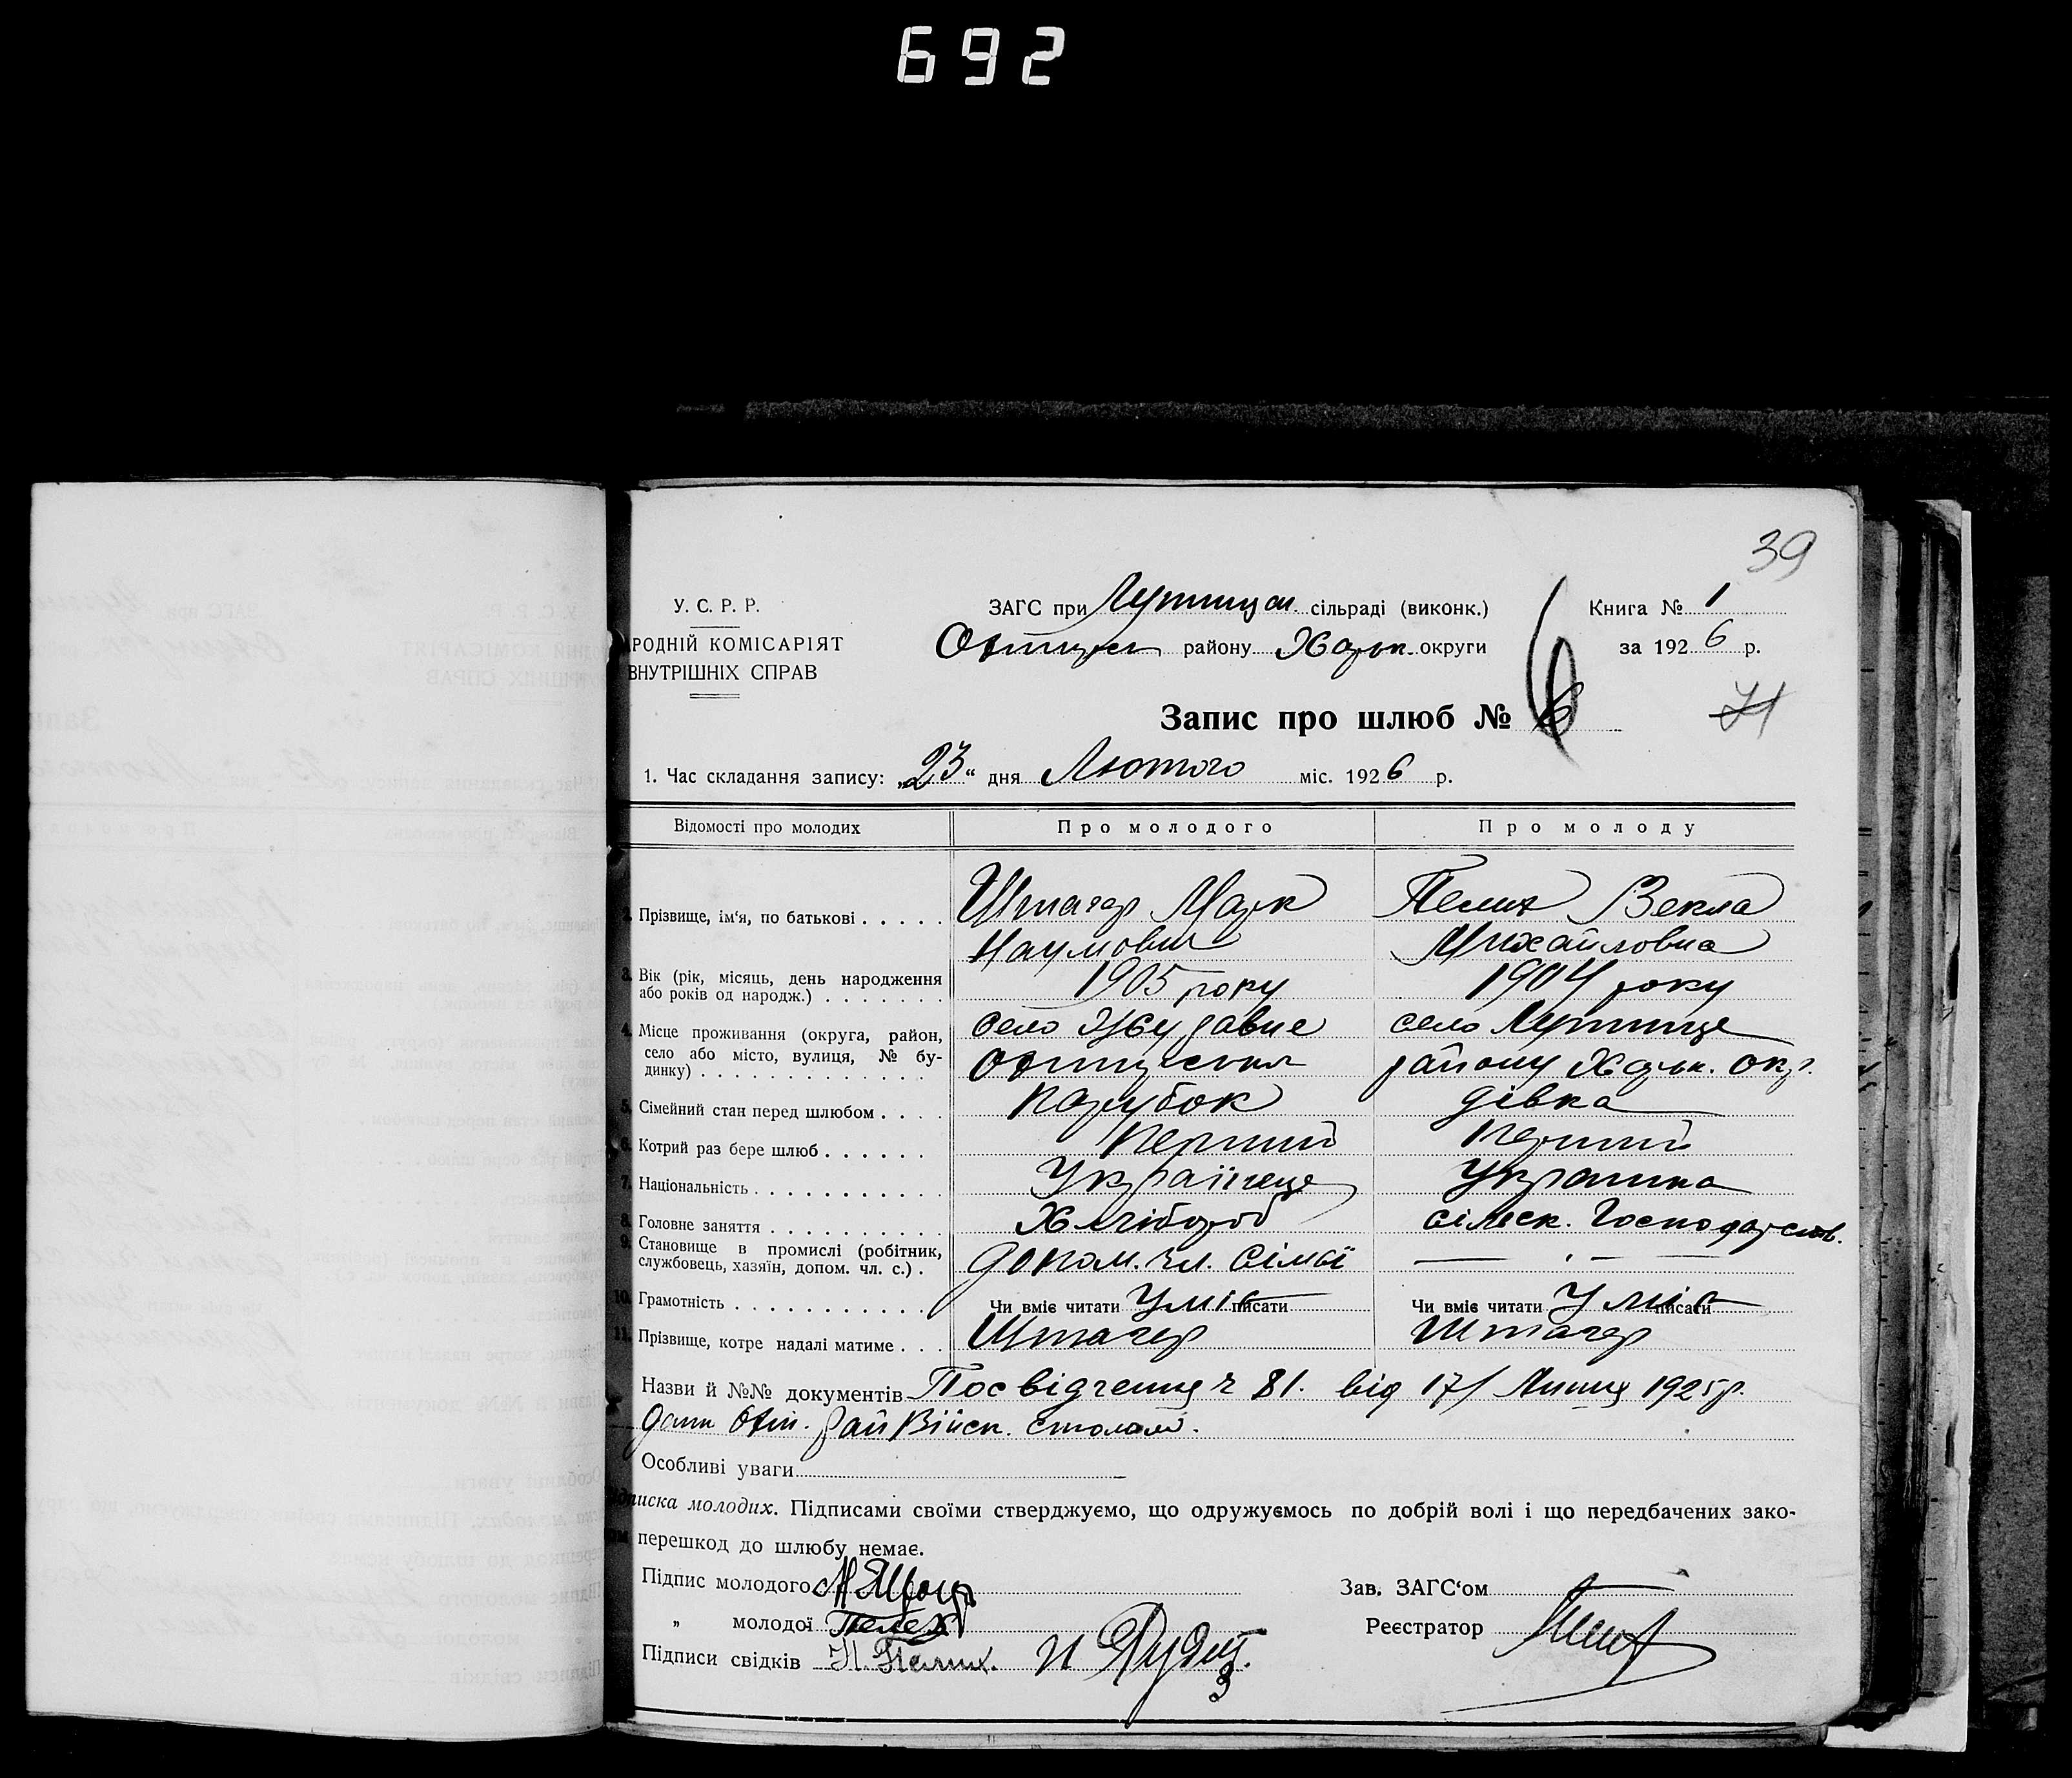 692
39
У. С. Р. Р.
РОДНІЙ КОМІСАРІЯТ
ВНУТРІШНІХ СПРАВ
ЗАГС при Лутищан. сільраді (виконк.)
района Харьк. округи
Книга № 1
за 1926 р.
Запис про шлюб № 6
71
1. Час складання запису: „23“ дня Лютого міс. 1926 р.
Відомості про молодих
Про молодого
Про молоду
2. Прізвище, ім'я, по батькові . . . . .
Штагер Марк
Наумович
Пелих Векла
Михайловна
3. Вік (рік, місяць, день народження
або років од народж.) . . . . . . .
1905 року
1904 року
4. Місце проживання (округа, район,
село або місто, вулиця, № бу-
динку) . . . . . . . . . . . . .
село Журавне
село Лутище
району Харьк. окр.
5. Сімейний стан перед шлюбом . . . .
парубок
дівка
6. Котрий раз бере шлюб . . . . . .
перший
перший
7. Національність . . . . . . . . . . .
Українець
Украинка
8. Головне заняття . . . . . . . . . .
Хлібороб
сільск. Господарств.
9. Становище в промислі (робітник,
службовець, хазяїн, допом. чл. с.) .
допом. чл. сімьї
— „ —
10. Грамотність . . . . . . . . . . .
Чи вміє читати Уміє писати
Чи вміє читати Уміє писати
11. Прізвище, котре надалі матиме . . .
Штагер
Штагер
Назви й №№ документів Посвідчення ч 81. від 17/ Липня 1925р.
дати Охт. Рай Війск. столом.
Особливі уваги
дписка молодих. Підписами своїми стверджуємо, що одружуємось по добрій волі і що передбачених зако-
ом перешкод до шлюбу немає.
Підпис молодого
„ молодої Пелех
Підписи свідків Н. Пелих.
Зав. ЗАГС'ом
Реєстратор